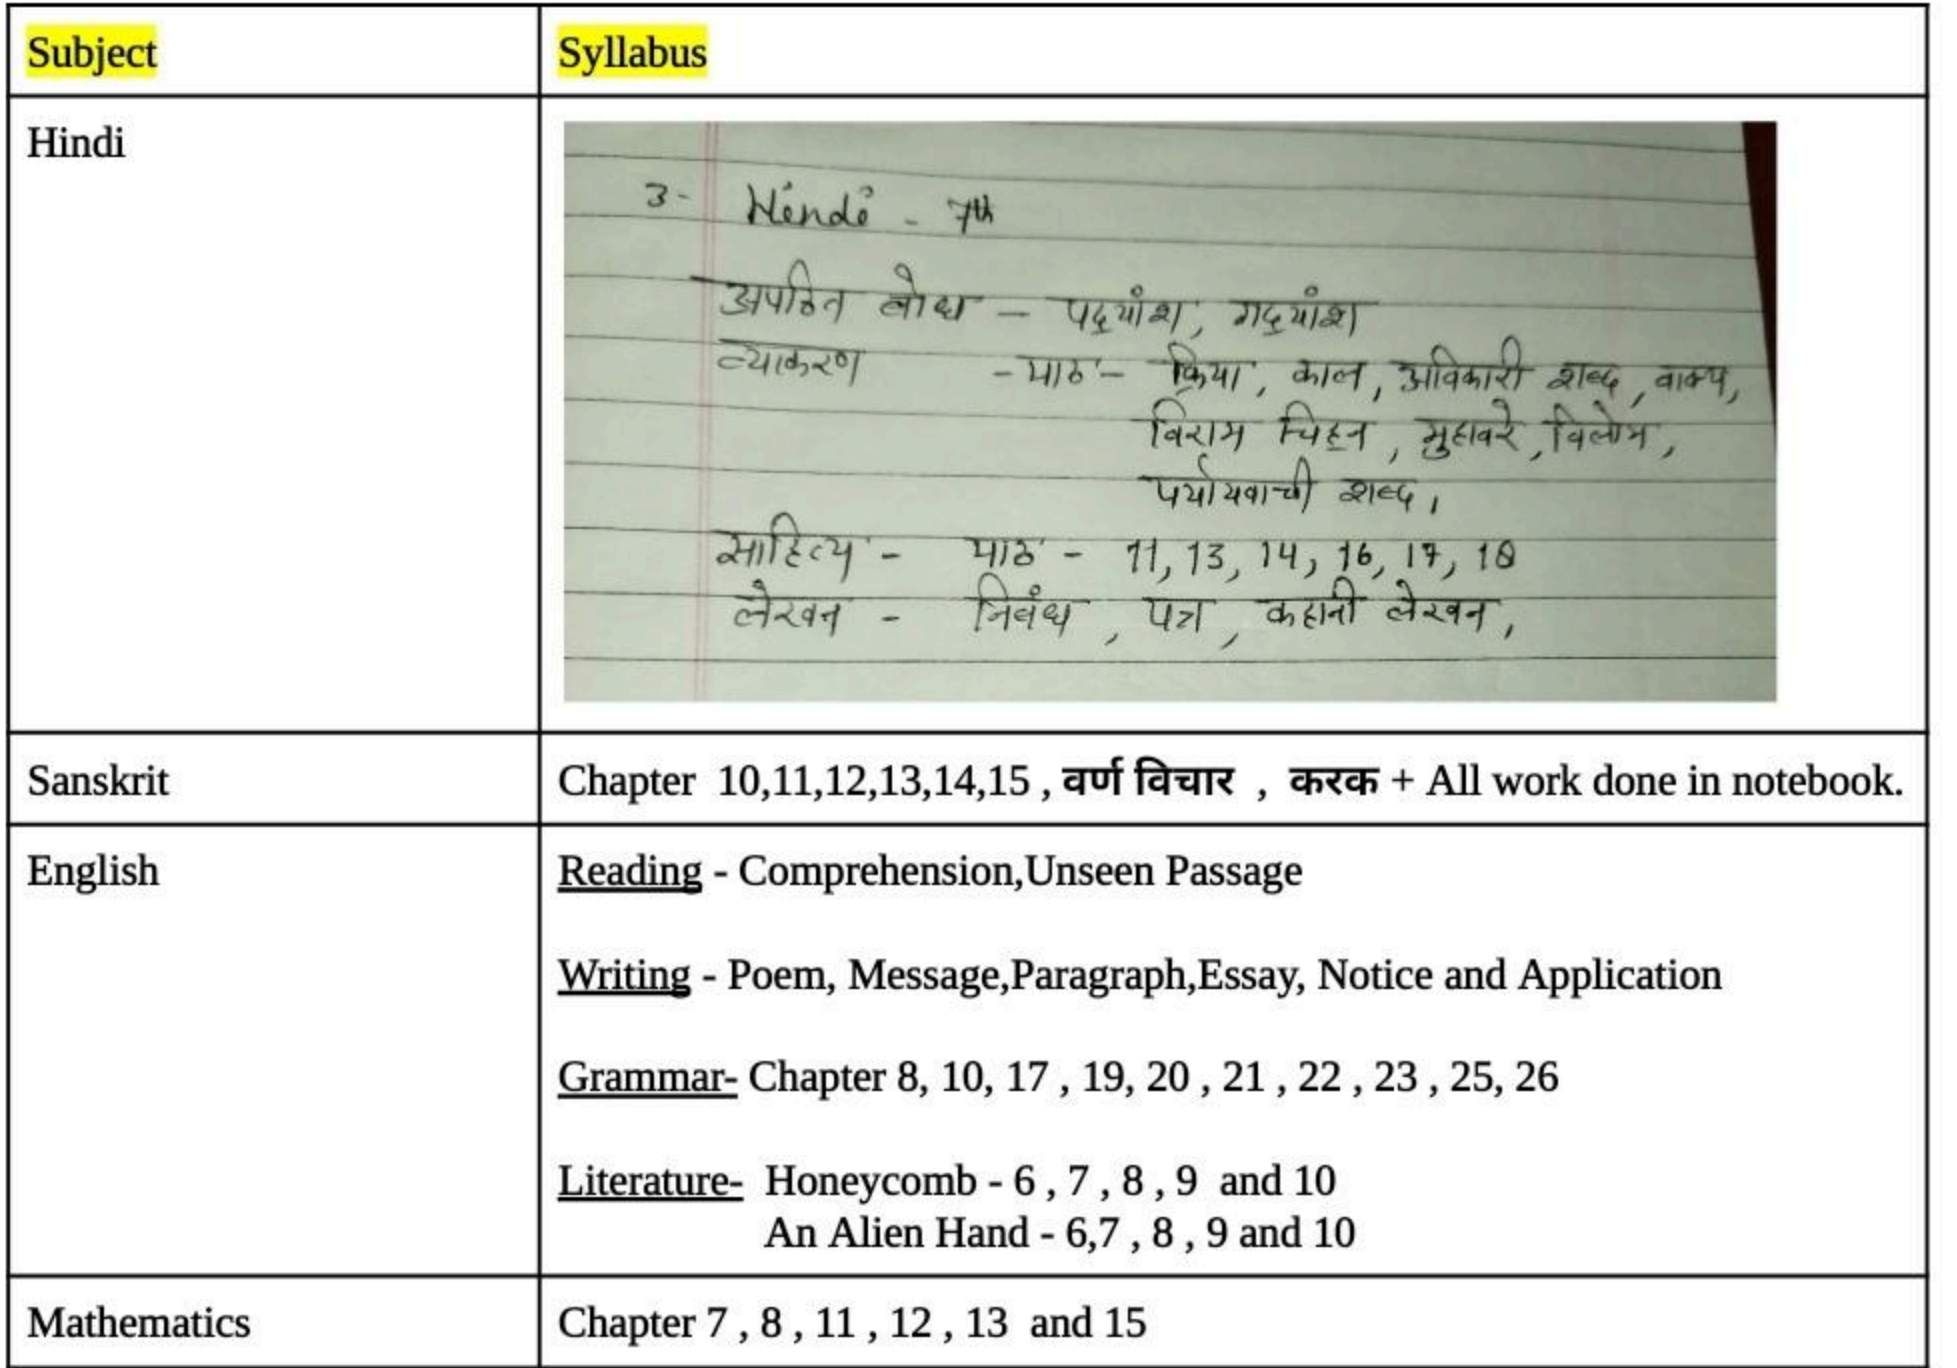 Subject
Syllabus
Hindi
3- Hindi - 7th
अपठित बोध - पद्यांश, गद्यांश
व्याकरण - पाठ - क्रिया, काल, अविकारी शब्द, वाक्य,
विराम चिह्न, मुहावरे, विलोम,
पर्यायवाची शब्द,
साहित्य - पाठ - 11, 13, 14, 16, 17, 18
लेखन - निबंध, पत्र, कहानी लेखन,
Sanskrit
Chapter 10,11,12,13,14,15 , वर्ण विचार , करक + All work done in notebook.
English
Reading - Comprehension,Unseen Passage
Writing - Poem, Message,Paragraph,Essay, Notice and Application
Grammar- Chapter 8, 10, 17 , 19, 20 , 21 , 22 , 23 , 25, 26
Literature- Honeycomb - 6 , 7 , 8 , 9 and 10
An Alien Hand - 6,7 , 8 , 9 and 10
Mathematics
Chapter 7 , 8 , 11 , 12 , 13 and 15